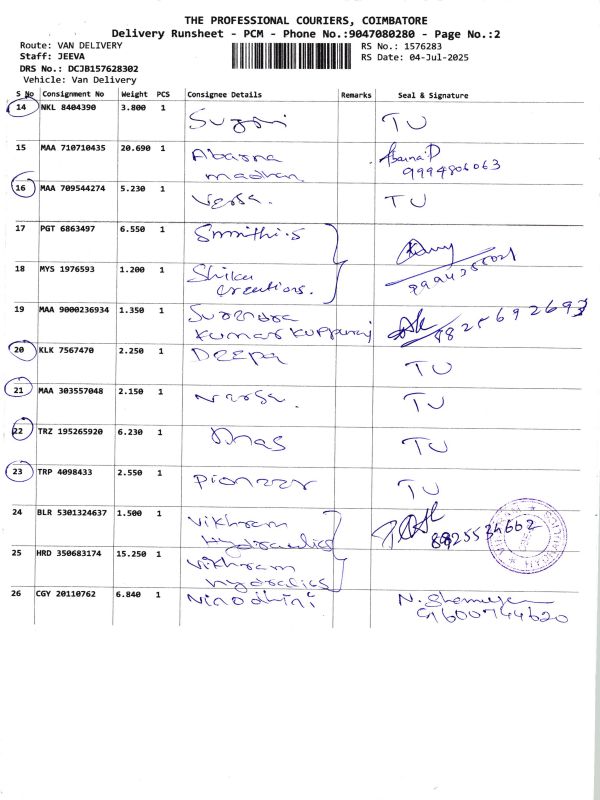 THE PROFESSIONAL COURIERS, COIMBATORE
Delivery Runsheet - PCM - Phone No.:9047080280 - Page No.:2
Route: VAN DELIVERY
RS No.: 1576283
Staff: JEEVA
RS Date: 04-Jul-2025
DRS No.: DCJB157628302
Vehicle: Van Delivery
S No Consignment No Weight PCS Consignee Details Remarks Seal & Signature
14 NKL 8404390 3.800 1 TU
15 MAA 710710435 20.690 1 Abarna
madhan 9994806063
16 MAA 709544274 5.230 1 TU
17 PGT 6863497 6.550 1
18 MYS 1976593 1.200 1
Creations.
19 MAA 9000236934 1.350 1 Surendra
Kumar Kuppuraj 8825692693
20 KLK 7567470 2.250 1 Deepa TU
21 MAA 303557048 2.150 1 TU
22 TRZ 195265920 6.230 1 TU
23 TRP 4098433 2.550 1 Pioneer TU
24 BLR 5301324637 1.500 1 Vikhram
Hydraulics 8825534662
25 HRD 350683174 15.250 1 Vikhram
hydraulics
26 CGY 20110762 6.840 1 Nirodhini N.
9600744620